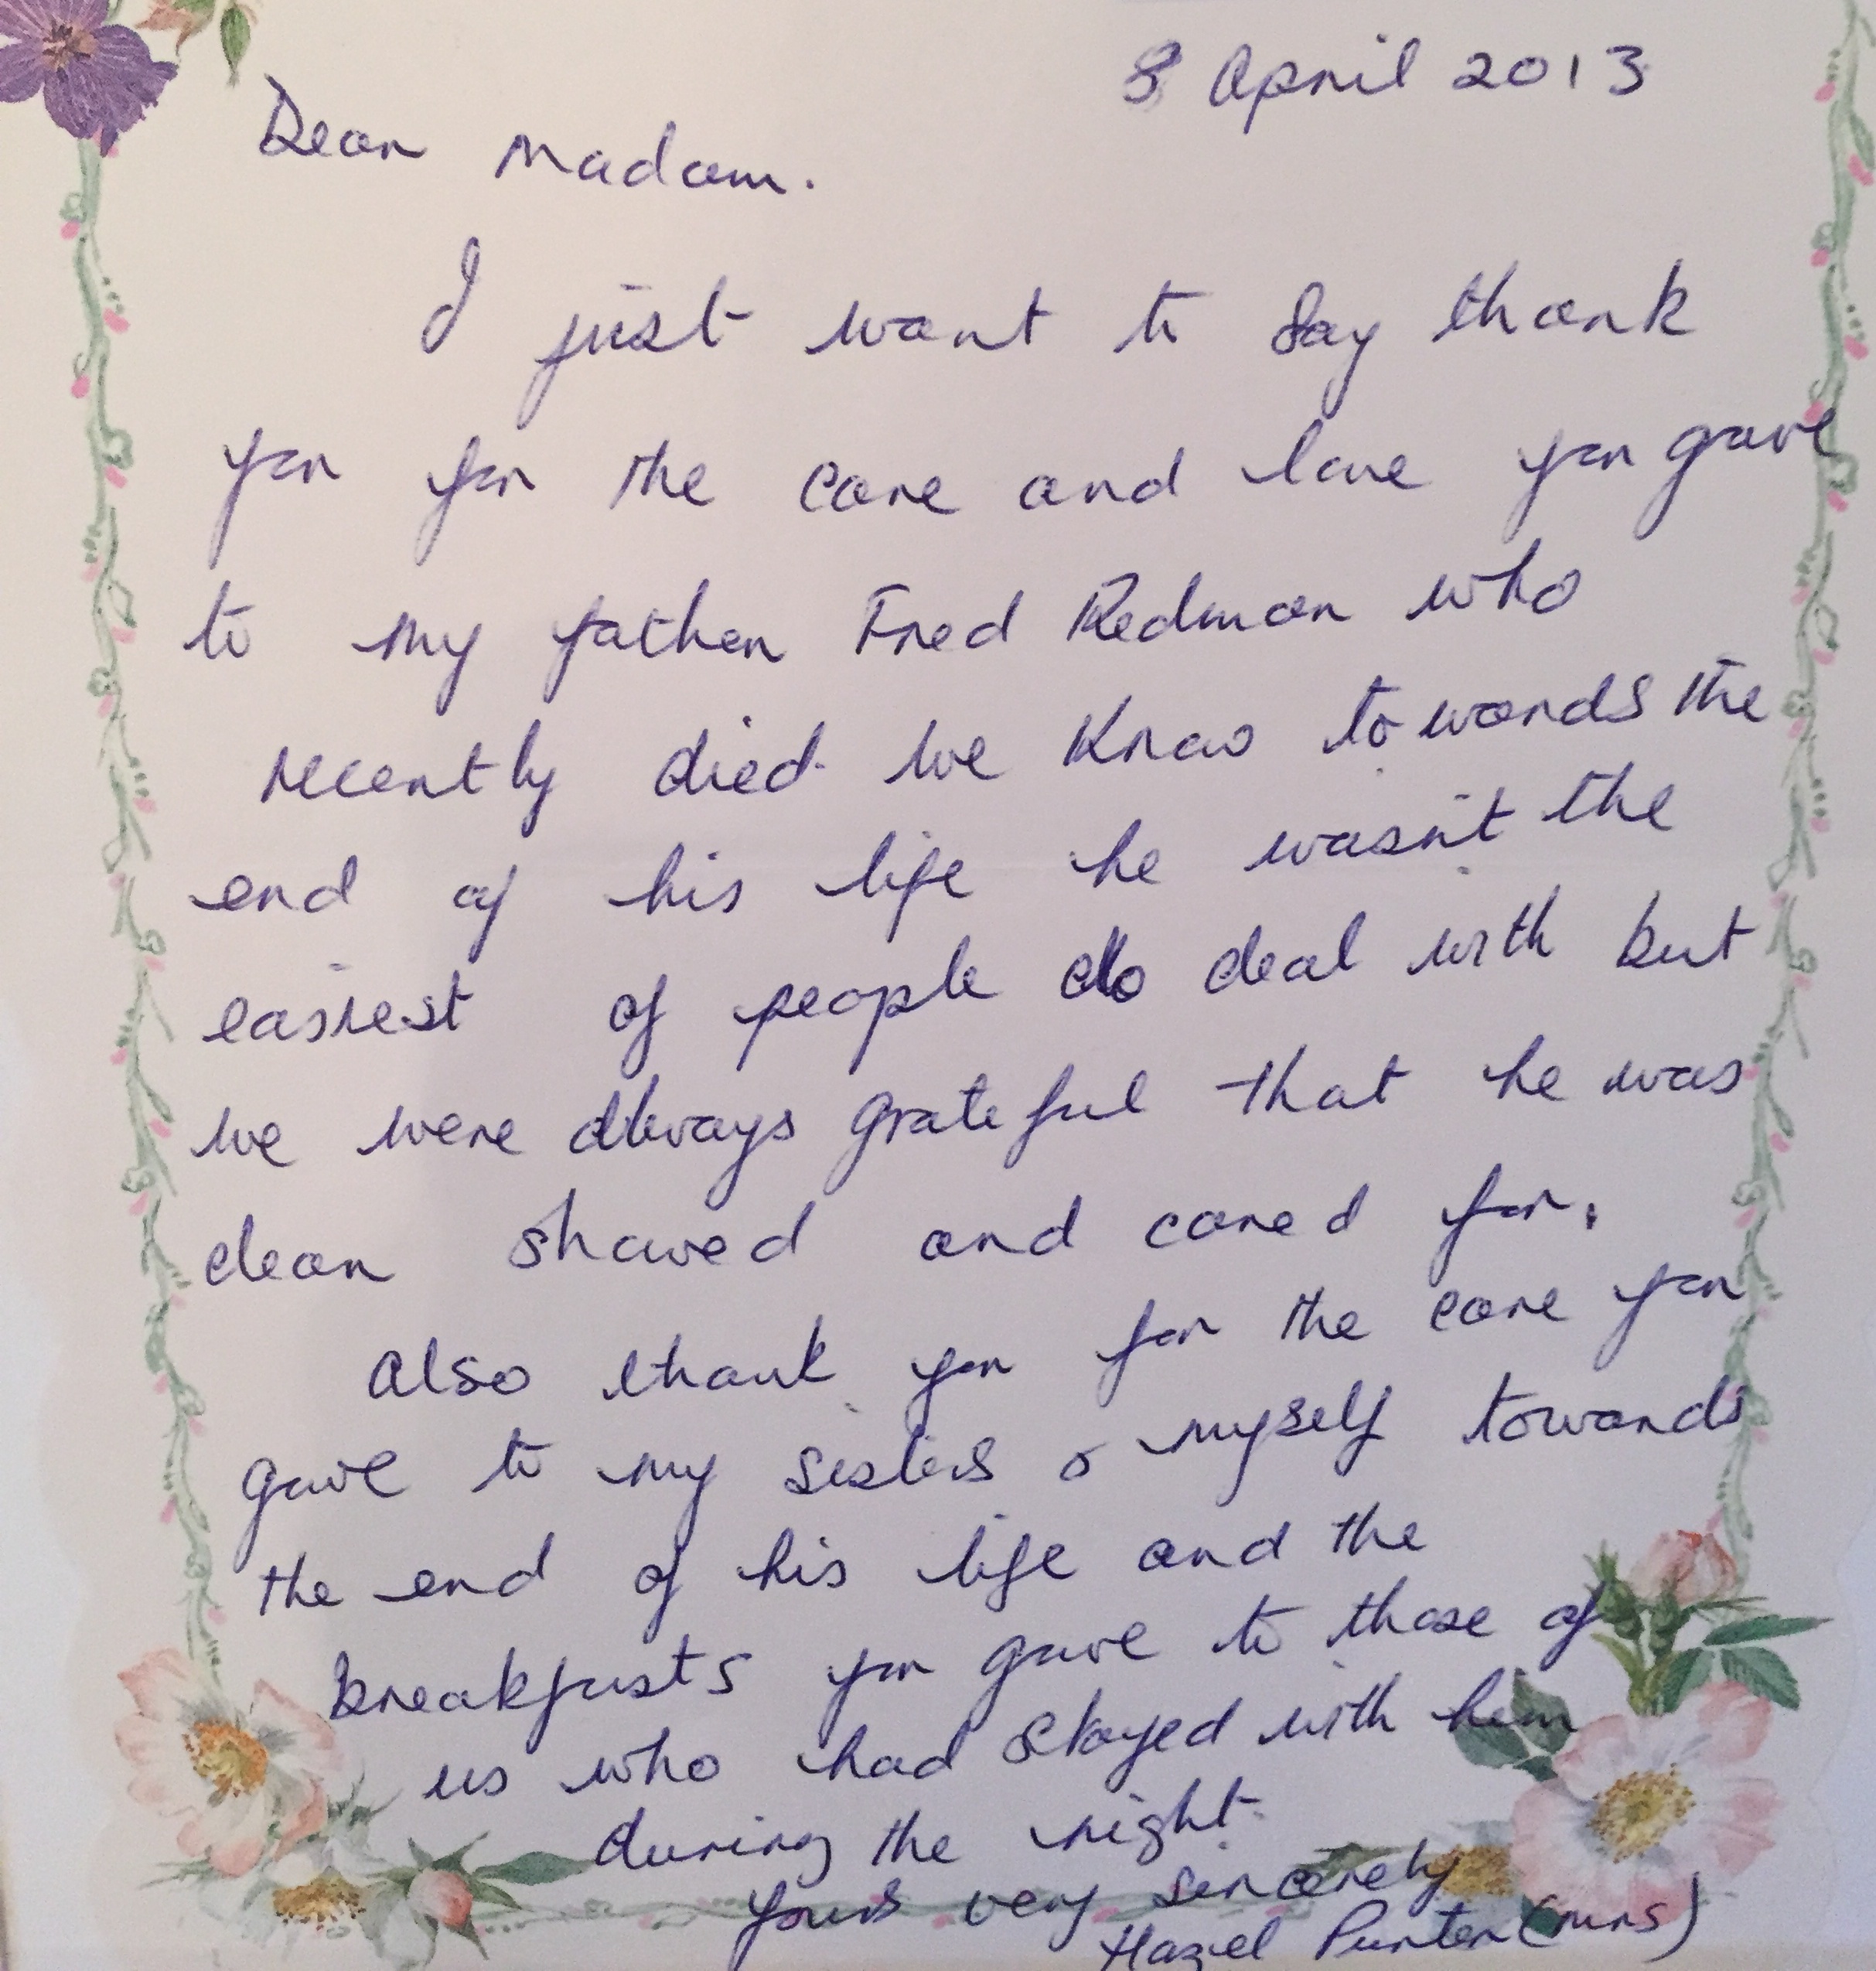 8 April 2013
Dear Madam.
I just want to say thank
you for the care and love you gave
to my father Fred Redman who
recently died. We know towards the
end of his life he wasn't the
easiest of people do deal with but
we were always grateful that he was
clean shaved and cared for.
Also thank you for the care you
gave to my sisters & myself towards
the end of his life and the
breakfasts you gave to those of
us who had stayed with him
during the night.
Yours very sincerely
Hazel Punter (mrs)